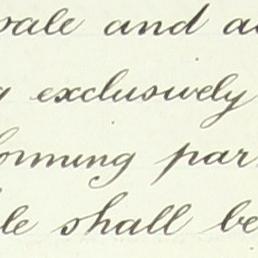 and
exclusively
forming par
shall be